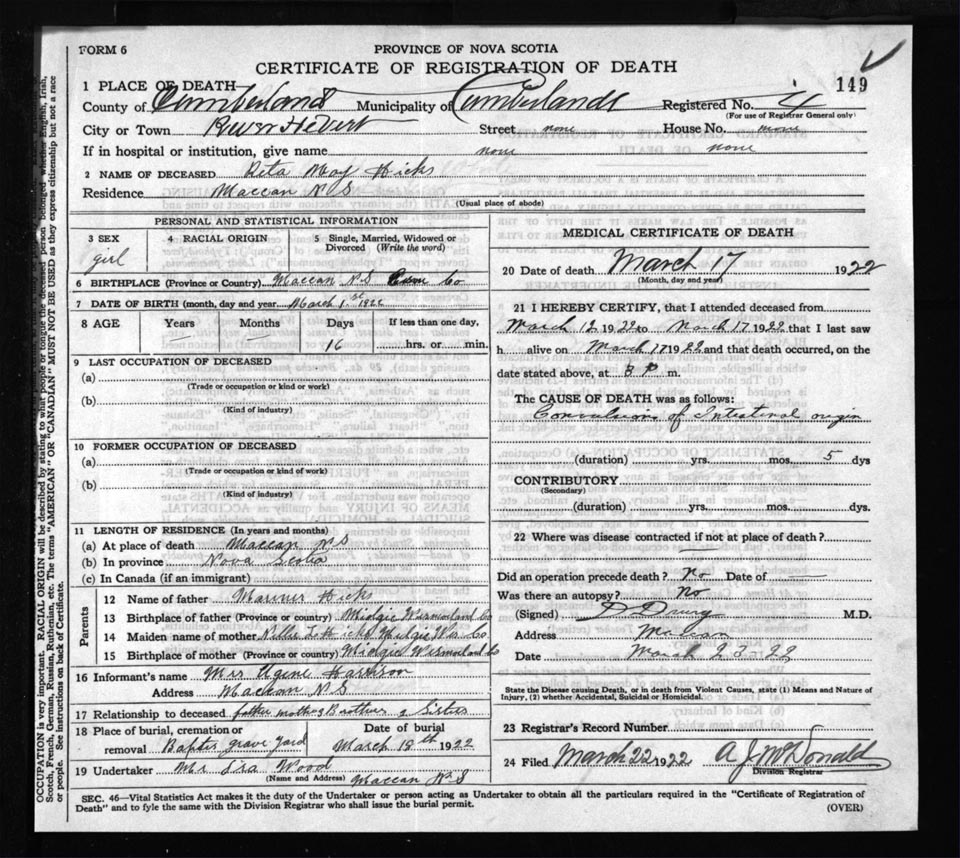 FORM 6
PROVINCE OF NOVA SCOTIA
CERTIFICATE OF REGISTRATION OF DEATH
149
1 PLACE OF DEATH
County of Cumberland Municipality of Cumberland Registered No. 4
(For use of Registrar General only)
City or Town River Hebert Street none House No. none
If in hospital or institution, give name none none
2 NAME OF DECEASED Reta May Hicks
Residence Maccan N S
(Usual place of abode)
PERSONAL AND STATISTICAL INFORMATION
3 SEX
girl
4 RACIAL ORIGIN
5 Single, Married, Widowed or Divorced (Write the word)
6 BIRTHPLACE (Province or Country) Maccan N S Cum Co
7 DATE OF BIRTH (month, day and year) March 1st 1922
8 AGE Years Months Days If less than one day,
16 hrs. or min.
9 LAST OCCUPATION OF DECEASED
(a)
(Trade or occupation or kind or work)
(b)
(Kind of industry)
10 FORMER OCCUPATION OF DECEASED
(a)
(Trade or occupation or kind of work)
(b)
(Kind of industry)
11 LENGTH OF RESIDENCE (In years and months)
(a) At place of death Maccan N S
(b) In province Nova Scotia
(c) In Canada (if an immigrant)
Parents
12 Name of father Mariner Hicks
13 Birthplace of father (Province or country) Midgic Wesmorland Co
14 Maiden name of mother Hicks Midgic Wes Co
15 Birthplace of mother (Province or country) Midgic Wesmorland Co
16 Informant's name Mrs Ugene Harrison
Address Maccan N S
17 Relationship to deceased father mother Brothers & Sisters
18 Place of burial, cremation or removal Baptis grave yard
Date of burial
March 18th 1922
19 Undertaker Mr Wood
(Name and Address) Maccan N S
MEDICAL CERTIFICATE OF DEATH
20 Date of death March 17 1922
(Month, day and year)
21 I HEREBY CERTIFY, that I attended deceased from
March 12 1922 to March 17 1922 that I last saw
h alive on March 17 1922 and that death occurred, on the
date stated above, at 8 P m.
The CAUSE OF DEATH was as follows:
Convulsions of Intestinal origin
(duration) yrs. mos. 5 dys
CONTRIBUTORY
(Secondary)
(duration) yrs. mos. dys.
22 Where was disease contracted if not at place of death?
Did an operation precede death? No Date of —
Was there an autopsy? No
(Signed) D Drury M.D.
Address Maccan
Date March 22 22
State the Disease causing Death, or in death from Violent Causes, state (1) Means and Nature of Injury, (2) whether Accidental, Suicidal or Homicidal.
23 Registrar's Record Number
24 Filed March 22 1922 A J McDonald
Division Registrar
SEC. 46—Vital Statistics Act makes it the duty of the Undertaker or person acting as Undertaker to obtain all the particulars required in the "Certificate of Registration of
Death" and to fyle the same with the Division Registrar who shall issue the burial permit.
(OVER)
OCCUPATION is very important. RACIAL ORIGIN will be described by stating to what people or tongue the deceased person belonged whether English, Irish,
Scotch, French, German, Russian, Ruthenian, etc. The terms "AMERICAN" OR "CANADIAN" MUST NOT BE USED as they express citizenship but not a race
or people. See instructions on back of Certificate.